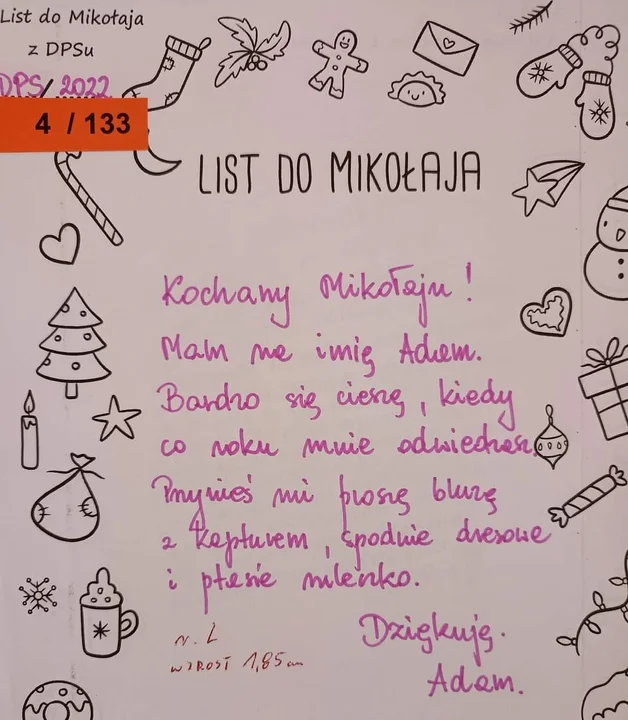 List do Mikołaja
z DPSu
DPS/2022
4 / 133
LIST DO MIKOŁAJA
Kochany Mikołaju!
Mam na imię Adam.
Bardzo się cieszę, kiedy
co roku mnie odwiedzasz.
Przynieś mi proszę bluzę
z kapturem, spodnie dresowe
i ptasie mleczko.
Dziękuję.
Adam.
r. L
WZROST 1,85 cm